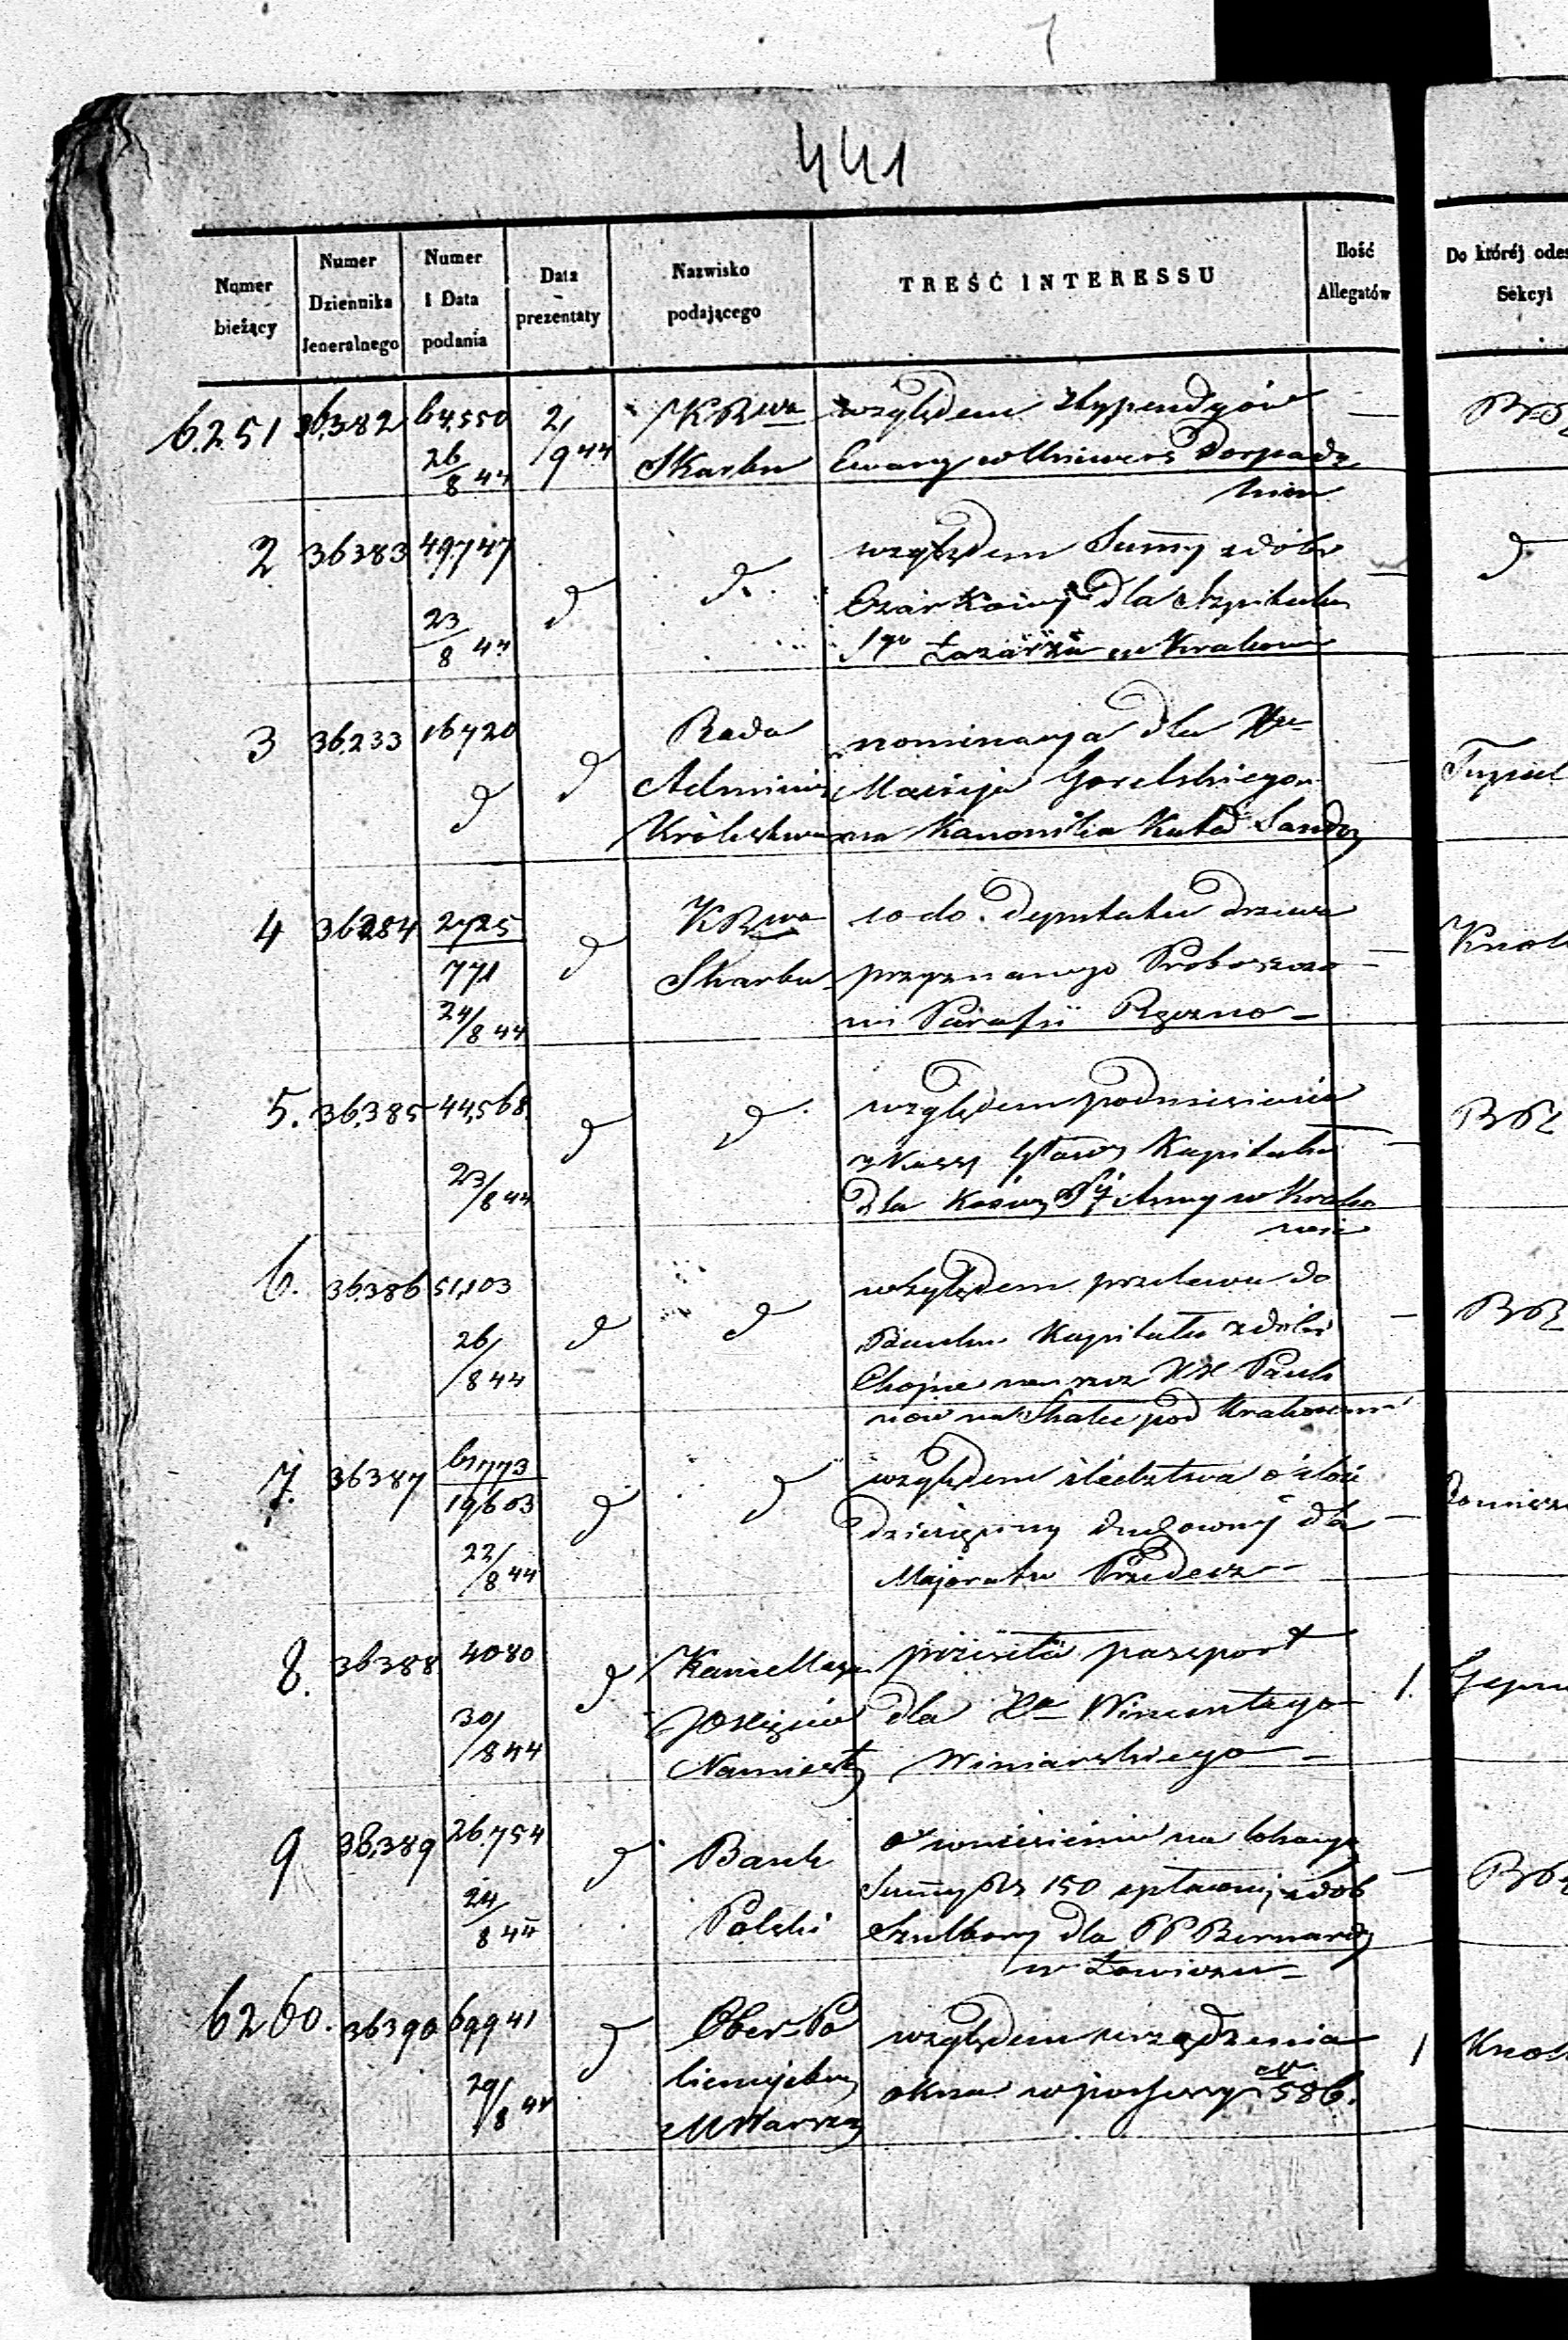 441
Numer bieżący | Numer Dziennika Jeneralnego | Numer i Data podania | Data prezentaty | Nazwisko podającego | TREŚĆ INTERESSU | Ilość Allegatów | Do któréj odes Sekcyi
6251 | 36382 | 64,550 26/8 44 | 2/9 44 | KRwa Skarbu | względem stypendyów
w Uniwers Dorpadz
kim
2 | 36383 | 49747 23/8 44 | d | d | względem Summy z dóbr
Czarkowy dla Szpitala
Sgo Łazarza w Krakowie
3 | 36,233 | 16720 d | d | Rada Adminis Królestwa | nominacya dla Xa
Macieja Gorelskiego
na Kanonika Kated Sando
4 | 36284 | 2725 771 24/8 44 | d | KRwa Skarbu | co do deputatu drzewa
przyznanego Proboszczo
wi Parafii Ręczno
5. | 36,385 | 44,568 23/8 44 | d | d | względem podniesienia
z Kassy Głowy Kapitału
dla Kości Sej Anny w Krako
wie
6. | 36386 | 51,103 26/8 44 | d | d | względem przelewu do
Banku Kapitału z dóbr
Chojne na rzecz XX Pauli
nów na Skałce pod Krakowem
7. | 36387 | 61773 19603 22/8 44 | d | d | względem śledztwa o ilość
dziesięciny duchownej dla
Majoratu Przedecz
8. | 36388 | 4080 30/8 44 | d | Kancellarya JO Xięcia Namiest | przesyła paszport
dla Xa Wincentego
Winiarskiego | 1.
9 | 36,389 | 26,754 24/8 44 | d | Bank Polski | o wniesieniu na lokacyą
Summy Rs 150 spłaconej z dób
Szulbory dla PP Bernardy
w Łowiczu
6260. | 36390 | 69941 29/8 44 | d | Ober-Po licmejster M Warszay | względem urządzenia
okna w possessyi N 586. | 1